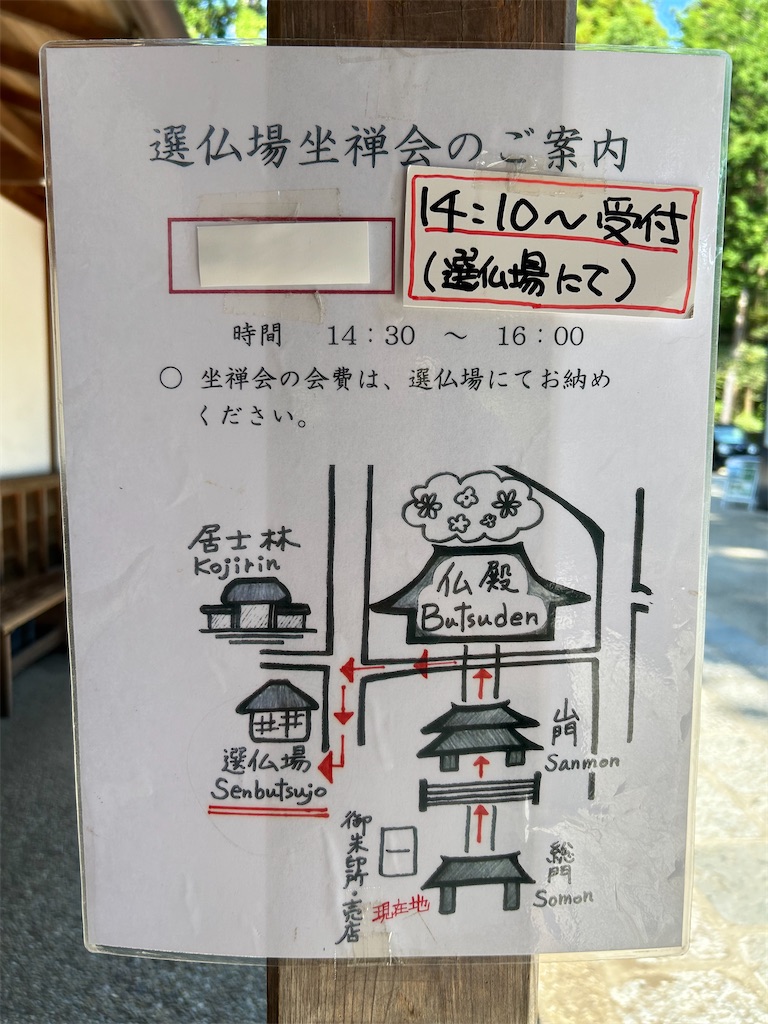 選仏場坐禅会のご案内
14:10〜受付
(選仏場にて)
時間 14:30 ～ 16:00
○ 坐禅会の会費は、選仏場にてお納め
ください。
居士林
Kojirin
仏殿
Butsuden
選仏場
Senbutsujo
山門
Sanmon
御朱印所・売店
現在地
総門
Somon